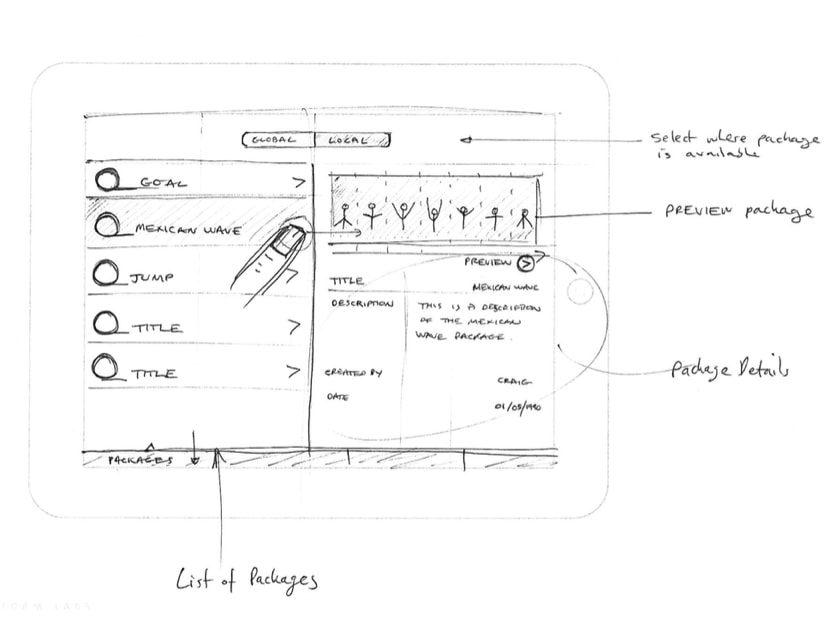 GLOBAL
LOCAL
Select where package
is available
GOAL
MEXICAN WAVE
JUMP
TITLE
TITLE
PREVIEW package
PREVIEW
TITLE
MEXICAN WAVE
DESCRIPTION
THIS IS A DESCRIPTION
OF THE MEXICAN
WAVE PACKAGE.
CREATED BY
CRAIG
DATE
Package Details
PACKAGES
List of Packages